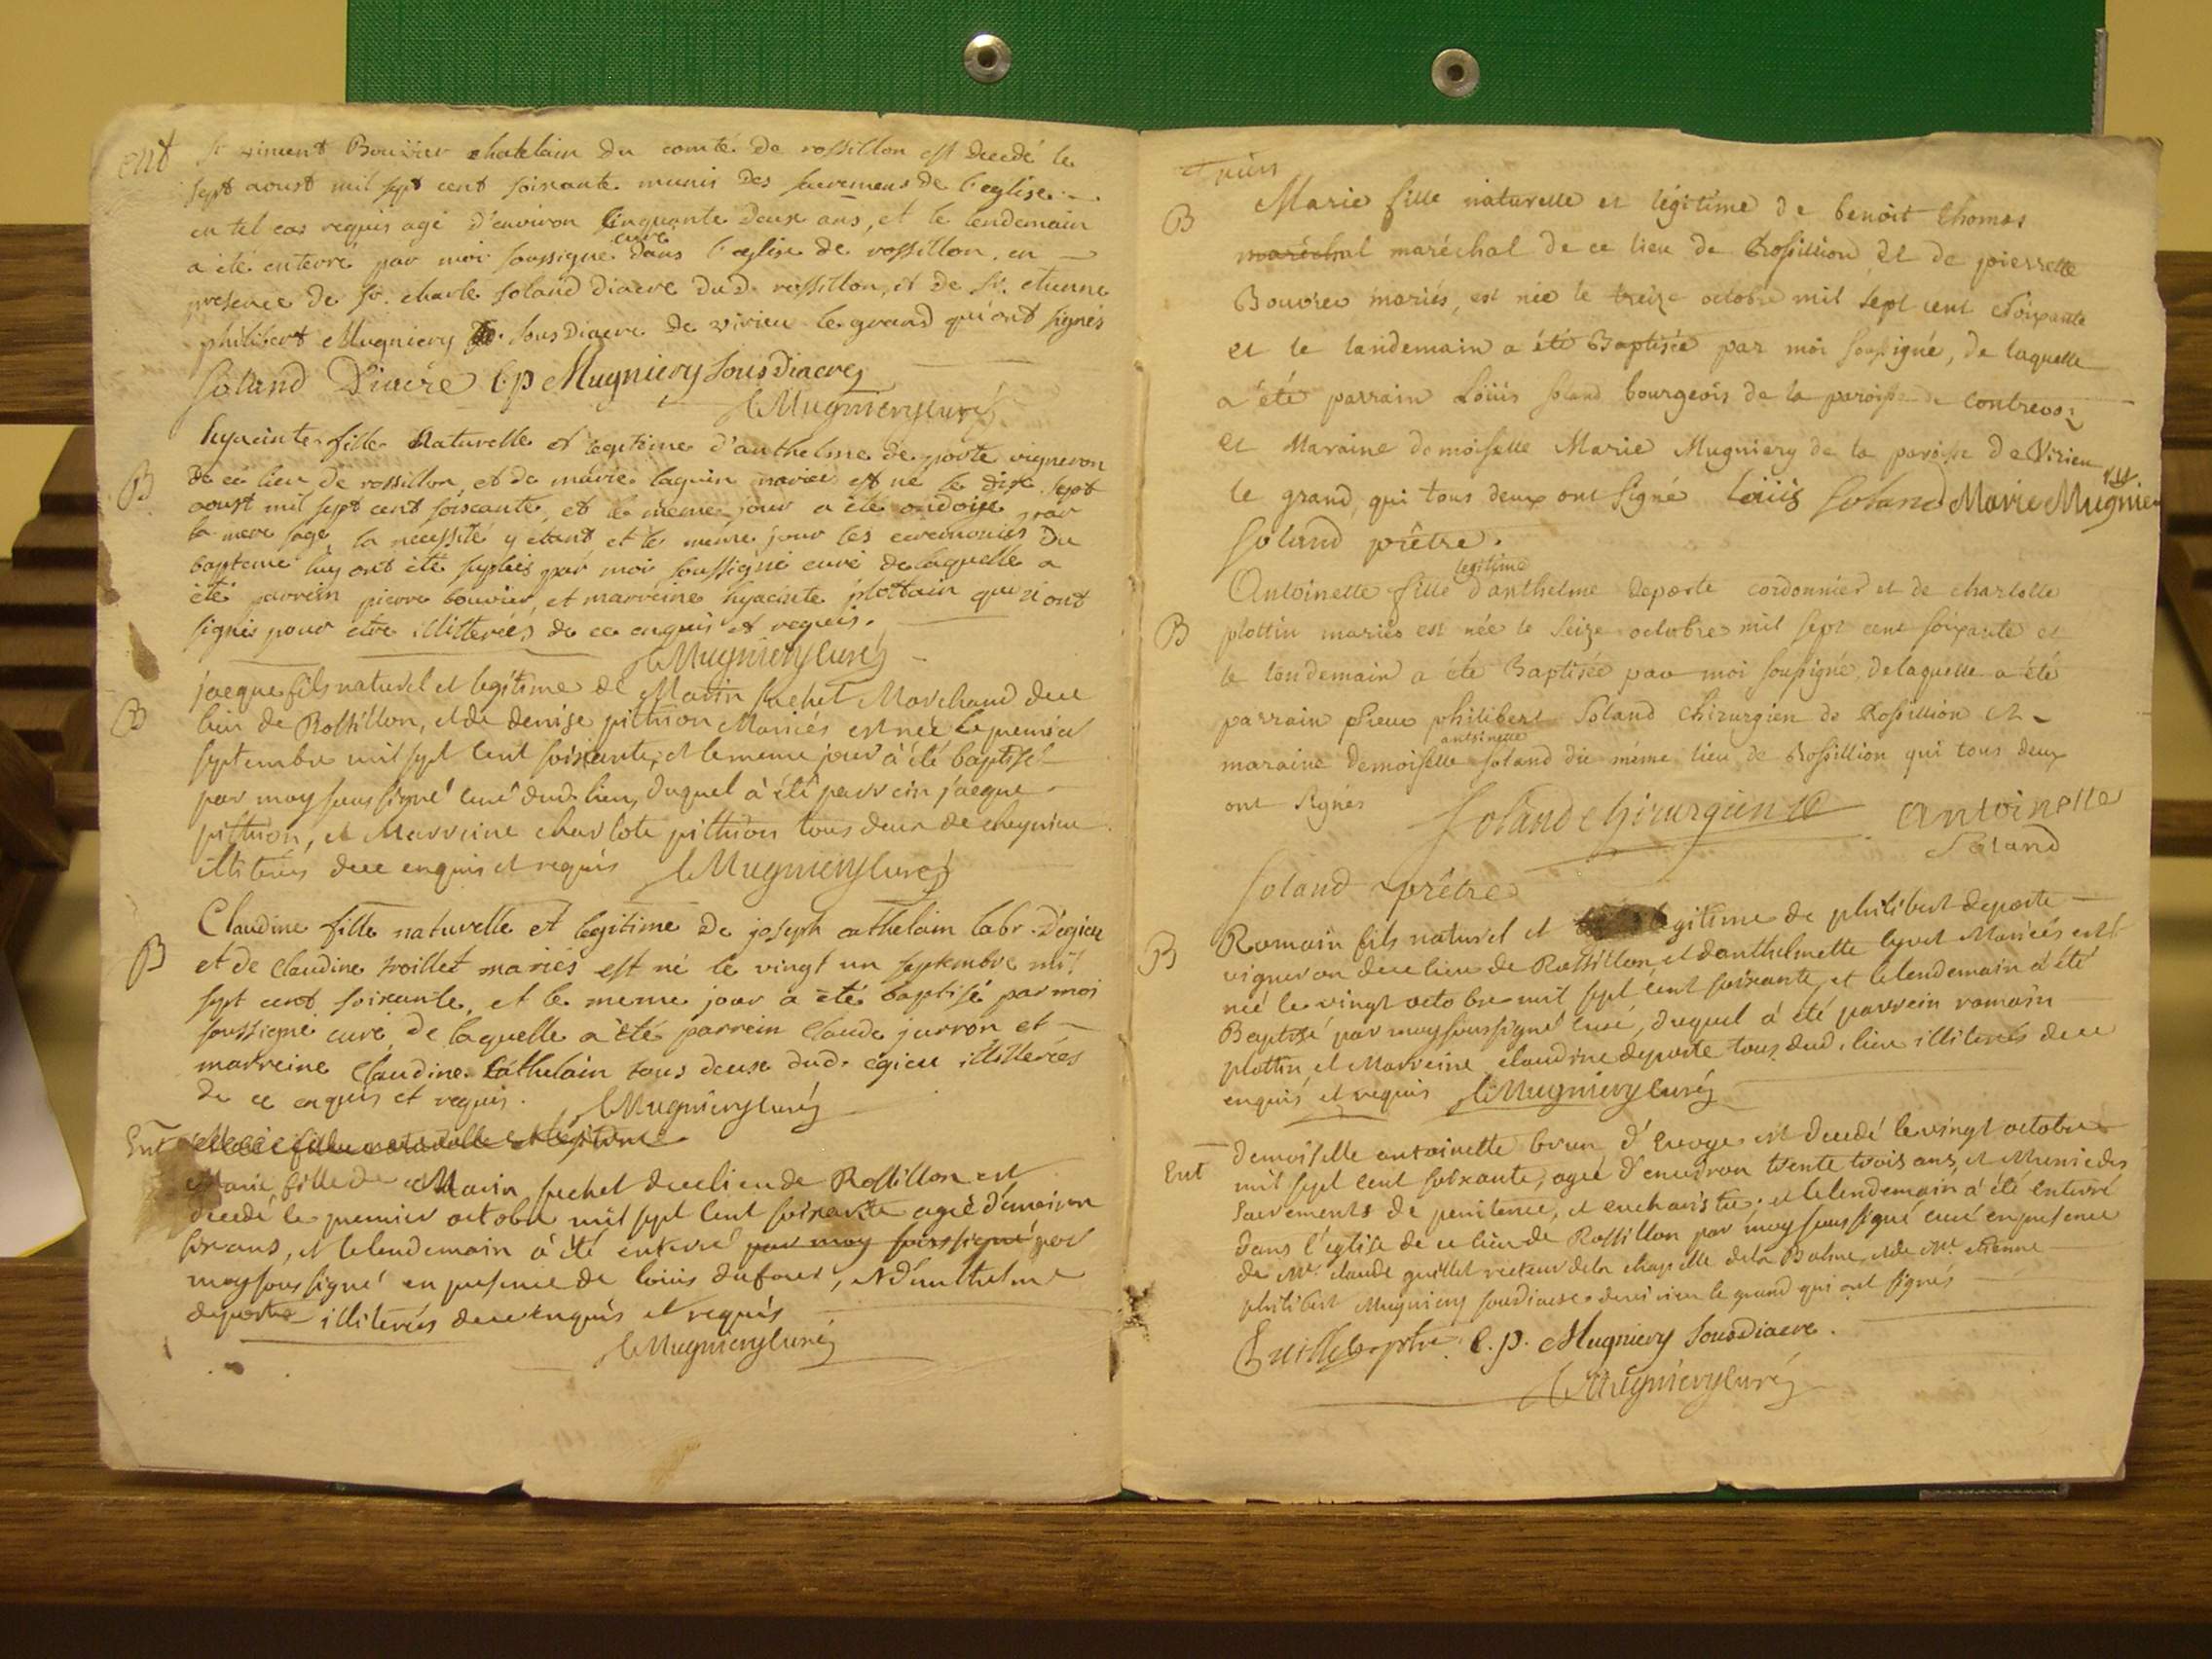 ent Sr vincent Bouvier chatelain du comté de rossillon est decedé le
sept aoust mil sept cent soixante munis des sacremens de l'eglise
en tel cas requis agé d'environ cinquante deux ans, et le lendemain
a été enterré par moi soussigné curé dans l'eglise de rossillon, en
presence de Sr. charle soland diacre dud. rossillon, et de Sr. etienne
philibert Mugniery sous Diacre de virieu le grand qui ont signés
Soland Diacre E p Mugniery Sous Diacre
Mugniery curé
B hyacinte fille naturelle et legitime d'anthelme de porte vigneron
de ce lieu de rossillon, et de marie laguin mariés est né le dix sept
aoust mil sept cent soixante, et le meme jour a été ondoyé par
la mere sage la necessité y etant et le meme jour les ceremonies du
bapteme luy ont été suplées par moi soussigné curé de laquelle a
été parrein pierre bouvier, et marreine hyacinte plottain qui n'ont
signés pour etre illitterées de ce enquis et requis.
Mugniery curé
B jacque fils naturel et legitime de Marin suchet Marchand du
lieu de Rossillon, et de denise pithion Mariés est né le premier
septembre mil sept cent soixante, et le meme jour à été baptisé
par moy soussigné curé dud. lieu, duquel à été parrein jacque
pithion, et Marreine charlote pithion tous deux de cheignieu
illiterés de ce enquis et requis Mugniery curé
B Claudine fille naturelle et legitime de joseph cathelain labr. d'egieu
et de Claudine troillet mariés est né le vingt un septembre mil
sept cent soixante, et le meme jour a été baptisé par moi
soussigné curé, de laquelle a été parrein Claude jurron et
marreine Claudine Cathelain tous deux dud. egieu illitterées
de ce enquis et requis. Mugniery curé
Ent Marie fille naturelle et legitime
Marie fille de Marin suchet de ce lieu de Rossillon est
decedé le premier octobre mil sept cent soixante agé d'environ
six ans, et le lendemain à été enterré par moy soussigné par
moy soussigné en presence de louis dufour, et d'anthelme
deporte illiterés de ce enquis et requis
Mugniery curé
B Marie fille naturelle et légitime de benoit thomas
maréchal maréchal de ce lieu de Rossillion et de pierrette
Bouvier mariés, est née le treize octobre mil sept cent soixante
et le landemain a été Baptisée par moi soussigné, de laquelle
a été parrain Loüis soland bourgeois de la paroisse de contrevoz
et Maraine demoiselle Marie Mugniery de la paroisse de Virieu
le grand, qui tous deux ont signé Loüis Soland Marie Mugniery
Soland prêtre.
B Antoinette fille legitime d'anthelme deporte cordonnier et de charlotte
plottin mariés est née le seize octobre mil sept cent soixante et
le landemain a été Baptisée par moi soussigné, de laquelle a été
parrain sieur philibert Soland chirurgien de Rossillion et
maraine demoiselle antoinette soland du même lieu de Rossillion qui tous deux
ont signés Soland chirurgien Antoinette
Soland
Soland prêtre
B Romain fils naturel et legitime de philibert deporte
vigneron de ce lieu de Rossillon, et d'anthelmette lyvet Mariés est
né le vingt octobre mil sept cent soixante, et le lendemain à été
Baptisé par moy soussigné curé, duquel à été parrein romain
plottin et Marreine claudine deporte tous dud. lieu illiterés de ce
enquis et requis Mugniery curé
Ent demoiselle antoinette brun d' est decedé le vingt octobre
mil sept cent soixante, agée d'environ trente trois ans, et Munie des
sacrements de penitence, et eucharistie; et le lendemain à été enterré
dans l'église de ce lieu de Rossillon par moy soussigné curé en presence
de Mre. claude guillet recteur de la chapelle de la Balme, et de Mre. etienne
philibert Mugniery soudiacre de virieu le grand qui ont signés
Guillet ptre. E. p. Mugniery Sous Diacre.
Mugniery curé